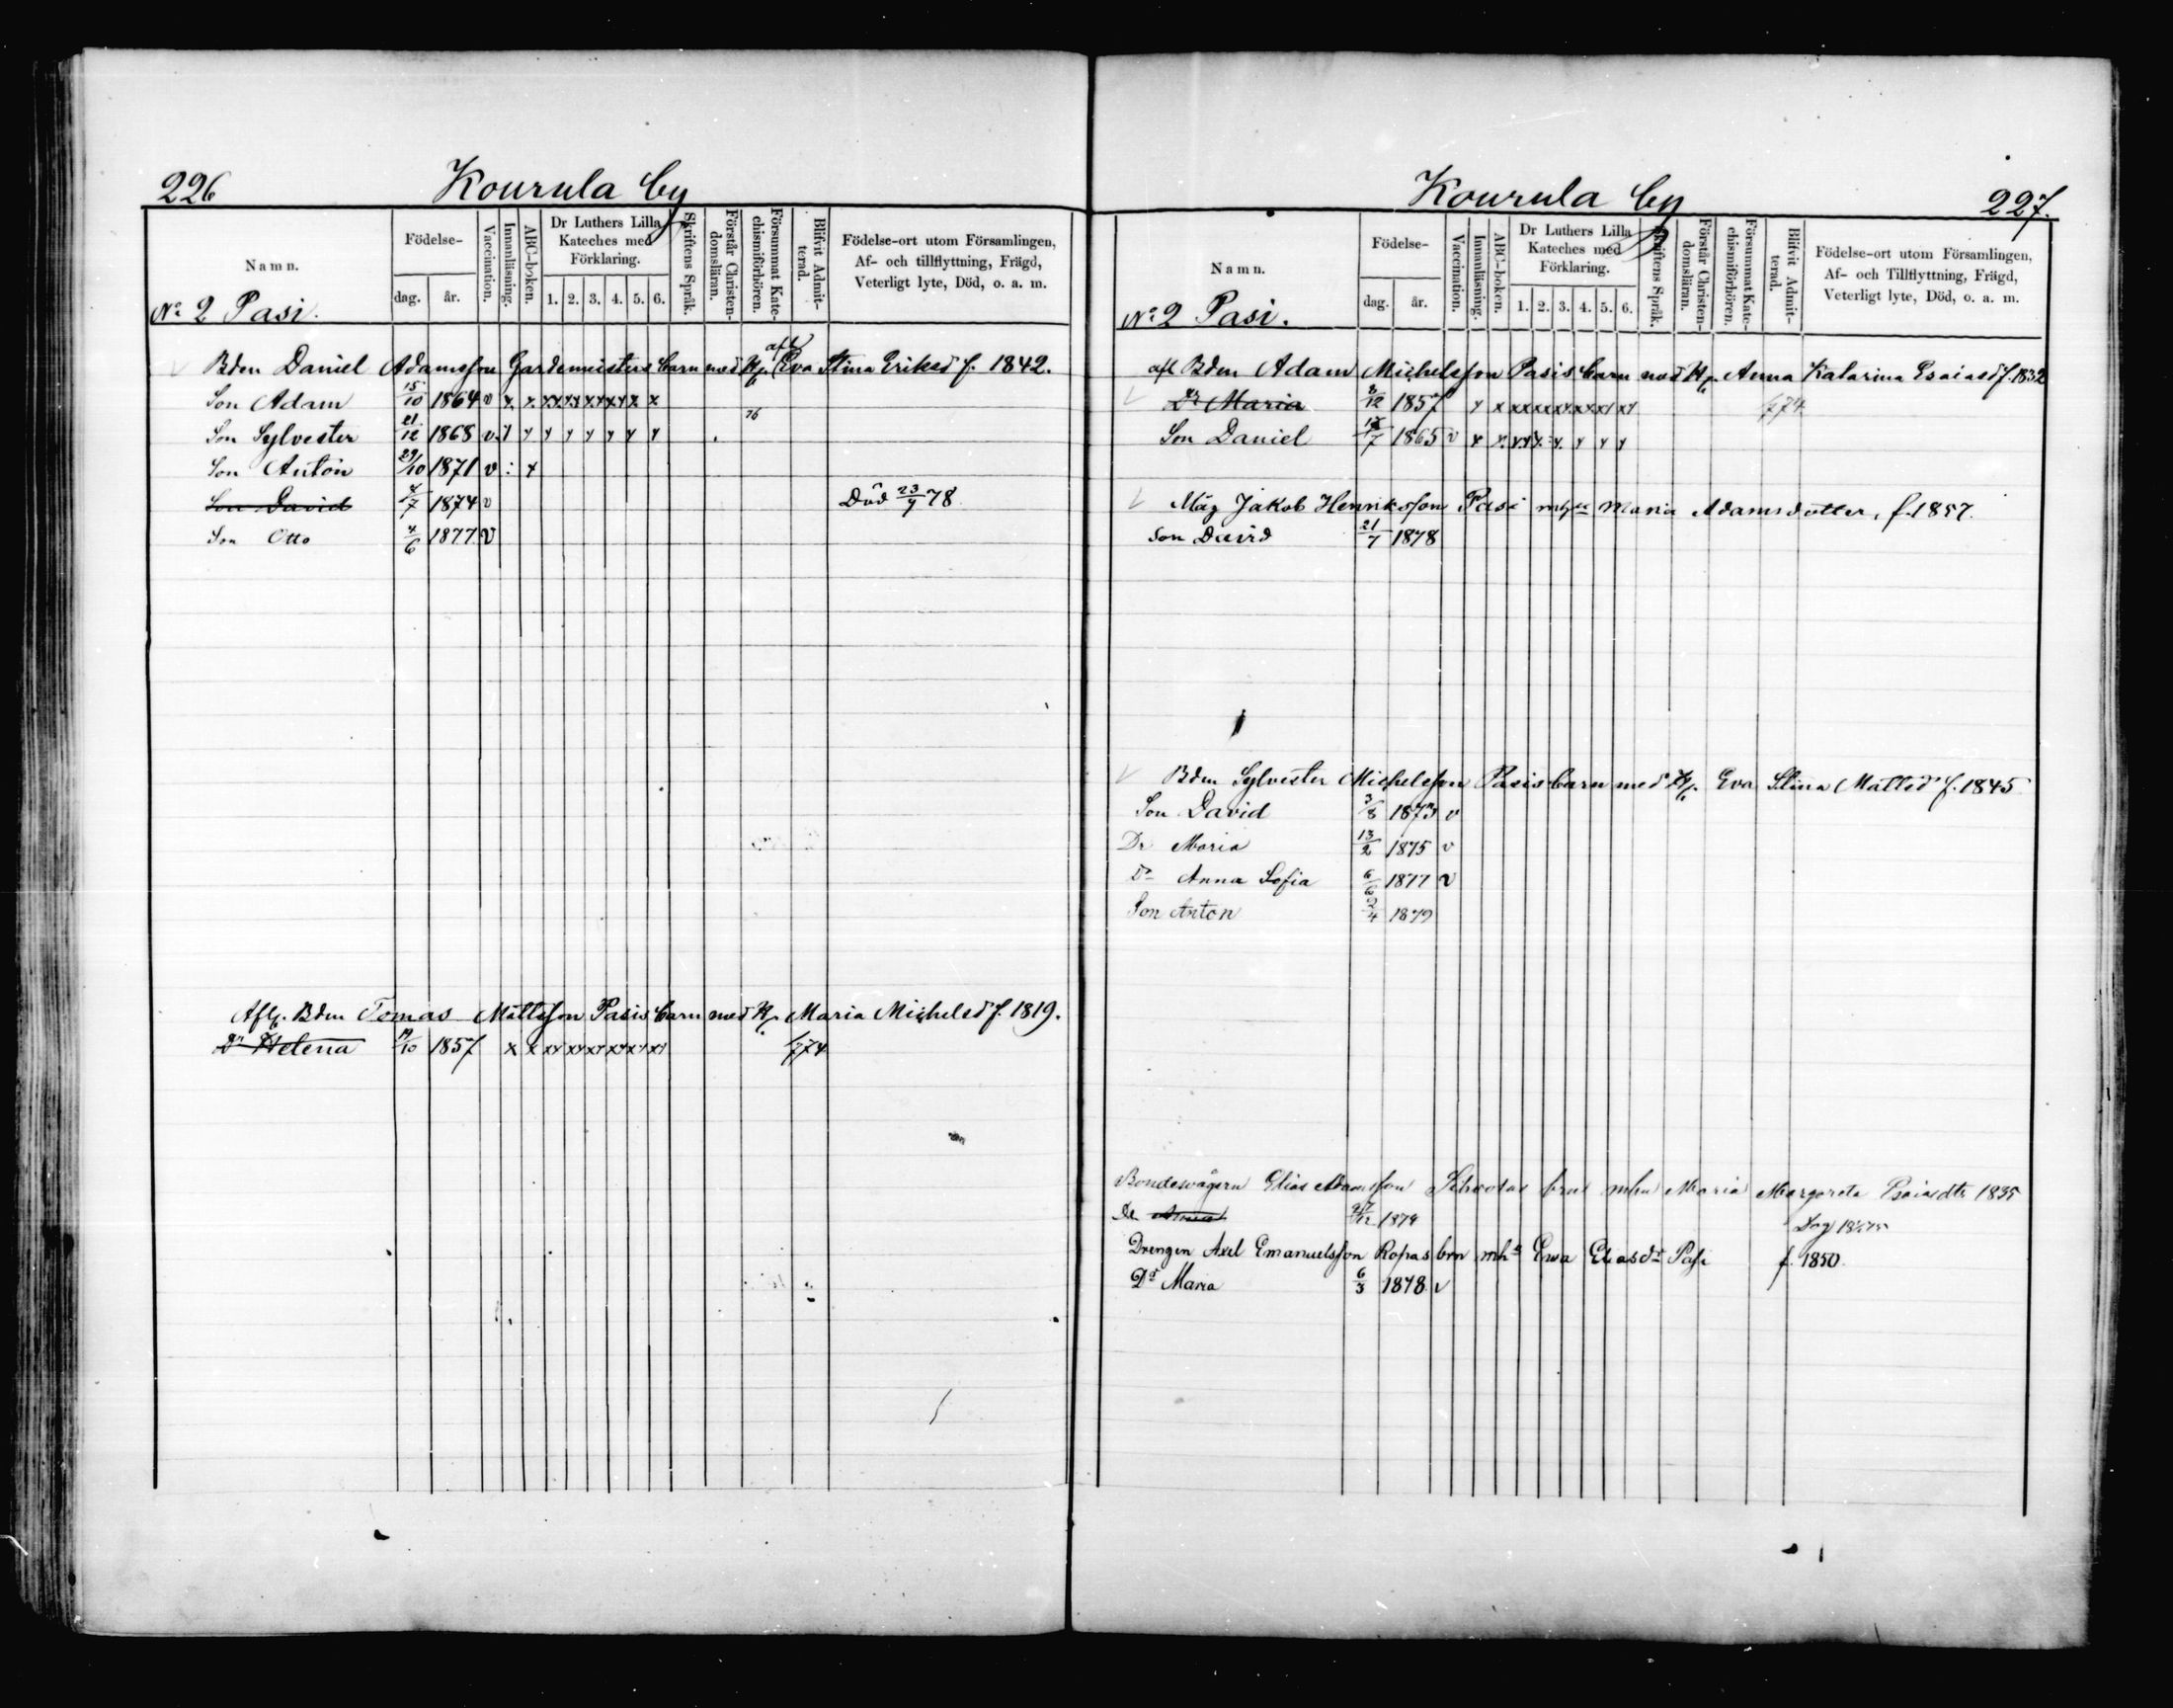 226 Kourula by
Namn.
Födelse-
dag. år.
Vaccination.
Innanläsning.
ABC-boken.
Dr Luthers Lilla Kateches med Förklaring.
1. 2. 3. 4. 5. 6.
Skriftens Språk.
Förstår Christendomsläran.
Försummat Katechismiförhören.
Blifvit Admitterad.
Födelse-ort utom Församlingen,
Af- och tillflyttning, Frägd,
Veterligt lyte, Död, o. a. m.
No 2 Pasi.
Bden Daniel Adamsson Gardemeisters barn med H. afl Eva Stina Eriksd f. 1842.
Son Adam 15/10 1864 v x x xx xx xx xx x x
76
Son Sylvester 21/12 1868 v. y y y y y y y
Son Anton 29/10 1871 v : x
Son David 4/7 1874 v Död 23/9 78
Son Otto 4/6 1877 v
Afl. Bden Tomas Mattsson Pasis barn med H. Maria Michelsd f. 1819.
Dr Helena 19/10 1857 x x xx xx xx xx xx xx 74
Kourula by 227.
Namn.
Födelse-
dag. år.
Vaccination.
Innanläsning.
ABC-boken.
Dr Luthers Lilla Kateches med Förklaring.
1. 2. 3. 4. 5. 6.
Skriftens Språk.
Förstår Christendomsläran.
Försummat Katechismiförhören.
Blifvit Admitterad.
Födelse-ort utom Församlingen,
Af- och Tillflyttning, Frägd,
Veterligt lyte, Död, o. a. m.
No 2 Pasi.
afl Bden Adam Michelsson Pasis barn med H. Anna Katarina Esaiasd f. 1832
Dr Maria 2/12 1857 y x xx xx xx xx xx xx 74
Son Daniel 1865 v x x xx x x x x x
Måg Jakob Henriksson Pasi Maria Adamsdotter, f. 1857.
Son David 21/7 1878
Bden Sylvester Michelsson Pasis barn med H. Eva Stina Mattsd f. 1845
Son David 3/8 1873 v
Dr Maria 13/2 1875 v
Dr Anna Sofia 6/6 1877 v
Son Anton 2/4 1879
Bondesvågern Elias Adamsson brn mhu Maria Margareta Esaiasdtr 1835
Dr Anna 1879
Drengen Axel Emanuelsson Ropas brn mha Ewa Eliasdr Pasi f. 1850
Dr Maria 6/3 1878 v